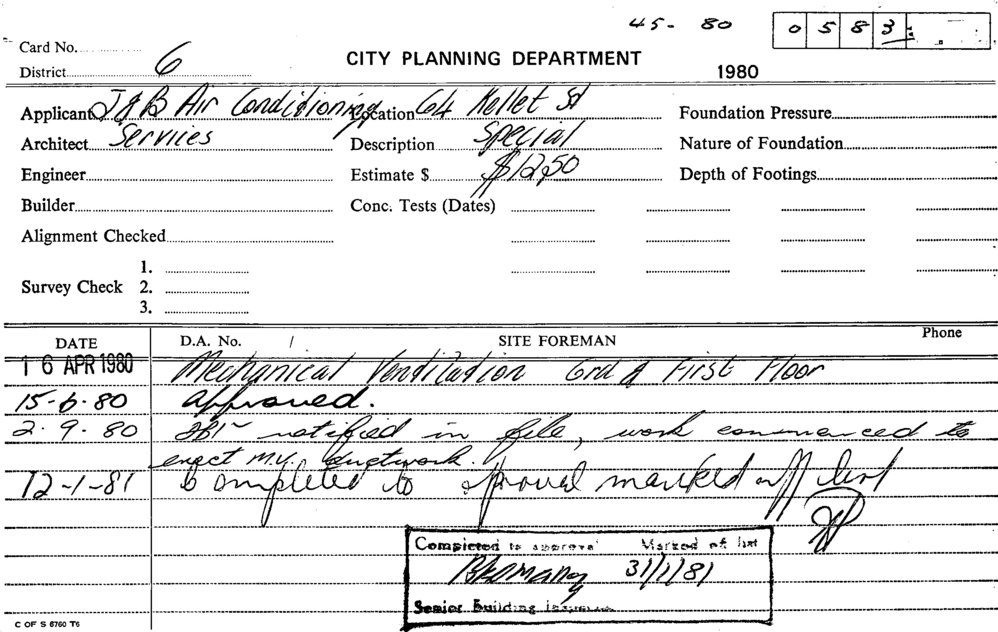 45- 80 0 5 8 3
Card No.
District 6
CITY PLANNING DEPARTMENT
1980
Applicant J & B Air Conditioning Location 64 Kellet St Foundation Pressure
Architect Services Description Special Nature of Foundation
Engineer Estimate $ $1250 Depth of Footings
Builder Conc. Tests (Dates)
Alignment Checked
1.
Survey Check 2.
3.
DATE D.A. No. / SITE FOREMAN Phone
16 APR 1980 Mechanical Ventilation Grd & First Floor
15-6-80 approved.
2.9.80 notified in file, work commenced to
erect ductwork.
12-1-81 Completed to approval marked off list
Completed to approval Marked off list
31/1/81
Senior Building Inspector
C OF S 6760 T6